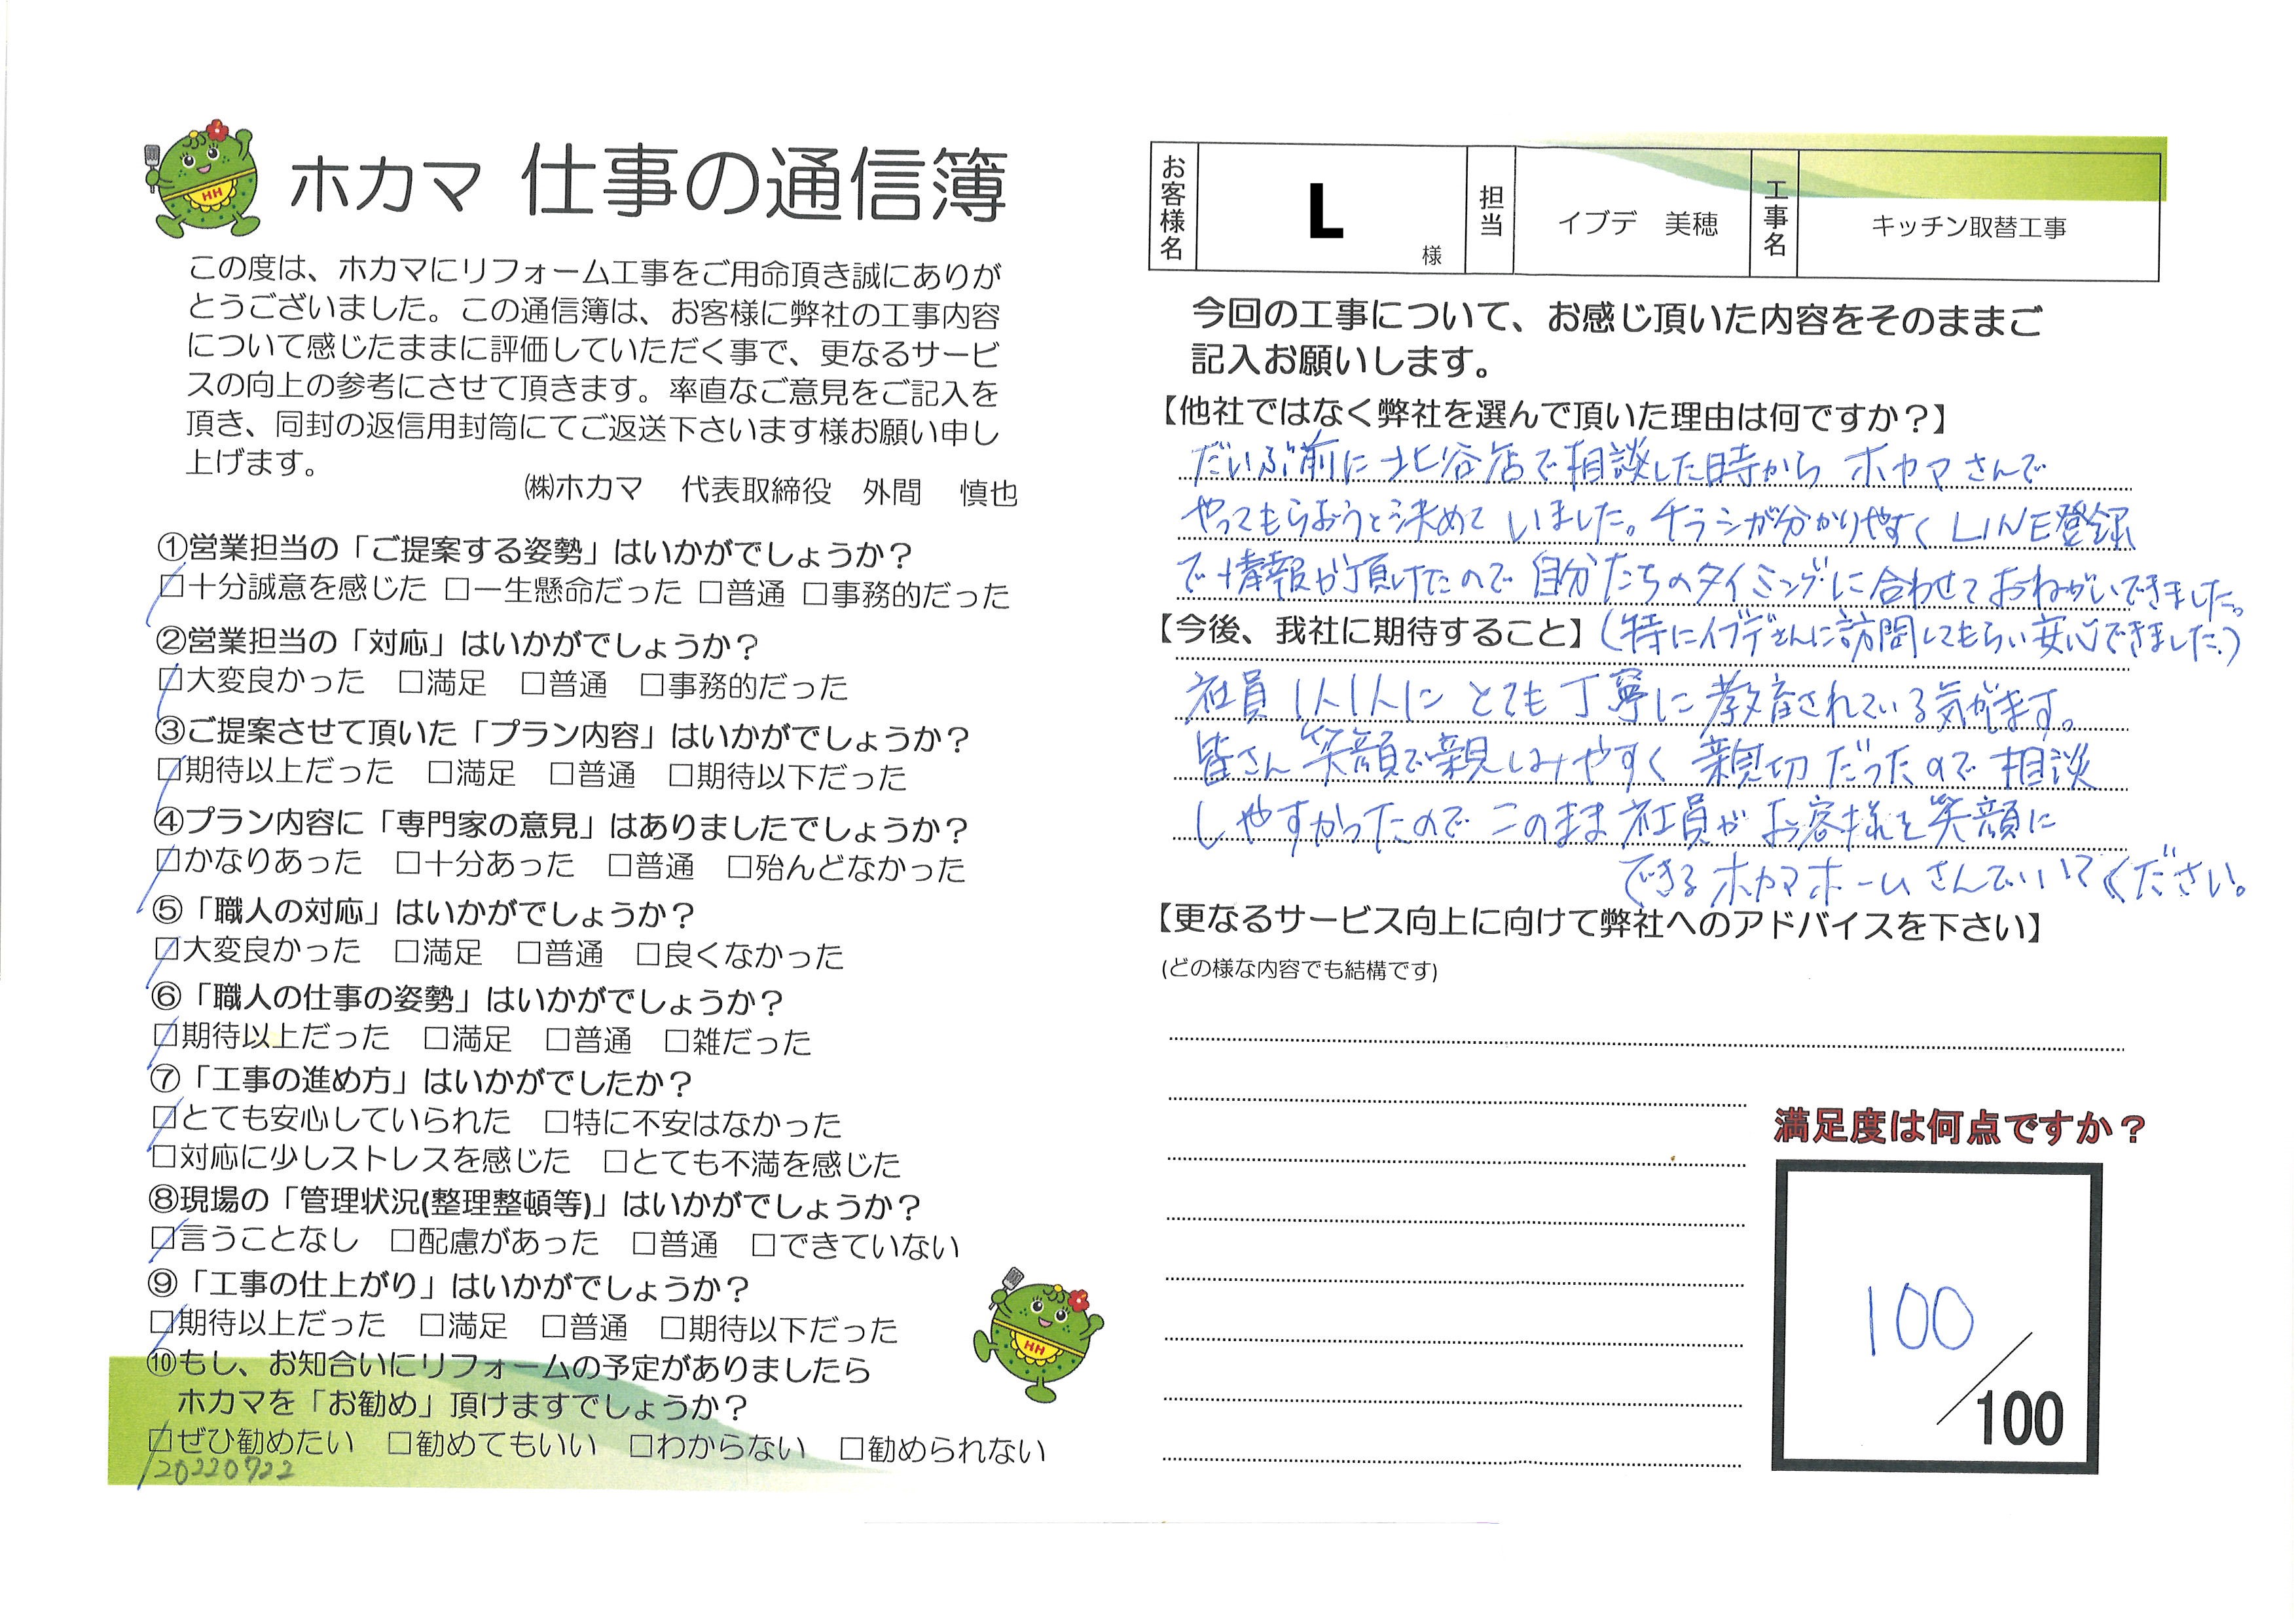 ホカマ 仕事の通信簿
この度は、ホカマにリフォーム工事をご用命頂き誠にありが
とうございました。この通信簿は、お客様に弊社の工事内容
について感じたままに評価していただく事で、更なるサービ
スの向上の参考にさせて頂きます。率直なご意見をご記入を
頂き、同封の返信用封筒にてご返送下さいます様お願い申し
上げます。
㈱ホカマ 代表取締役 外間 慎也
①営業担当の「ご提案する姿勢」はいかがでしょうか？
□十分誠意を感じた □一生懸命だった □普通 □事務的だった
②営業担当の「対応」はいかがでしょうか？
□大変良かった □満足 □普通 □事務的だった
③ご提案させて頂いた「プラン内容」はいかがでしょうか？
□期待以上だった □満足 □普通 □期待以下だった
④プラン内容に「専門家の意見」はありましたでしょうか？
□かなりあった □十分あった □普通 □殆んどなかった
⑤「職人の対応」はいかがでしょうか？
□大変良かった □満足 □普通 □良くなかった
⑥「職人の仕事の姿勢」はいかがでしょうか？
□期待以上だった □満足 □普通 □雑だった
⑦「工事の進め方」はいかがでしたか？
□とても安心していられた □特に不安はなかった
□対応に少しストレスを感じた □とても不満を感じた
⑧現場の「管理状況(整理整頓等)」はいかがでしょうか？
□言うことなし □配慮があった □普通 □できていない
⑨「工事の仕上がり」はいかがでしょうか？
□期待以上だった □満足 □普通 □期待以下だった
⑩もし、お知合いにリフォームの予定がありましたら
ホカマを「お勧め」頂けますでしょうか？
□ぜひ勧めたい □勧めてもいい □わからない □勧められない
20220722
HH
HH
お客様名 L 様 担当 イブデ 美穂 工事名 キッチン取替工事
今回の工事について、お感じ頂いた内容をそのままご
記入お願いします。
【他社ではなく弊社を選んで頂いた理由は何ですか？】
だいぶ前に北谷店で相談した時から ホカマさんで
やってもらおうと決めていました。チラシが分かりやすくLINE登録
で情報が頂けたので自分たちのタイミングに合わせておねがいできました。
【今後、我社に期待すること】(特にイブデさんに訪問してもらい安心できました。)
社員1人1人に とても丁寧に教育されている気がします。
皆さん笑顔で親しみやすく 親切だったので相談
しやすかったので このまま社員がお客様を笑顔に
できるホカマホームさんでいてください。
【更なるサービス向上に向けて弊社へのアドバイスを下さい】
(どの様な内容でも結構です)
満足度は何点ですか？
100
/100